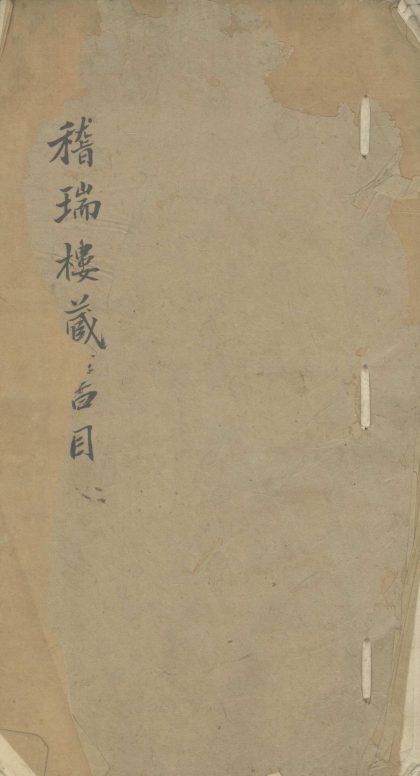 稽瑞樓藏書目